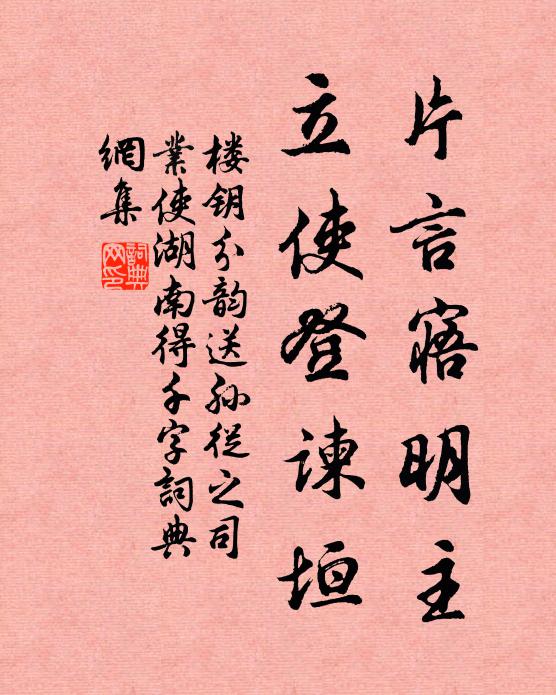 片言寤明主
立使登諫垣
楼钥分韵送孙從之司
業使湖南得千字詞典
網集
詞典
网印